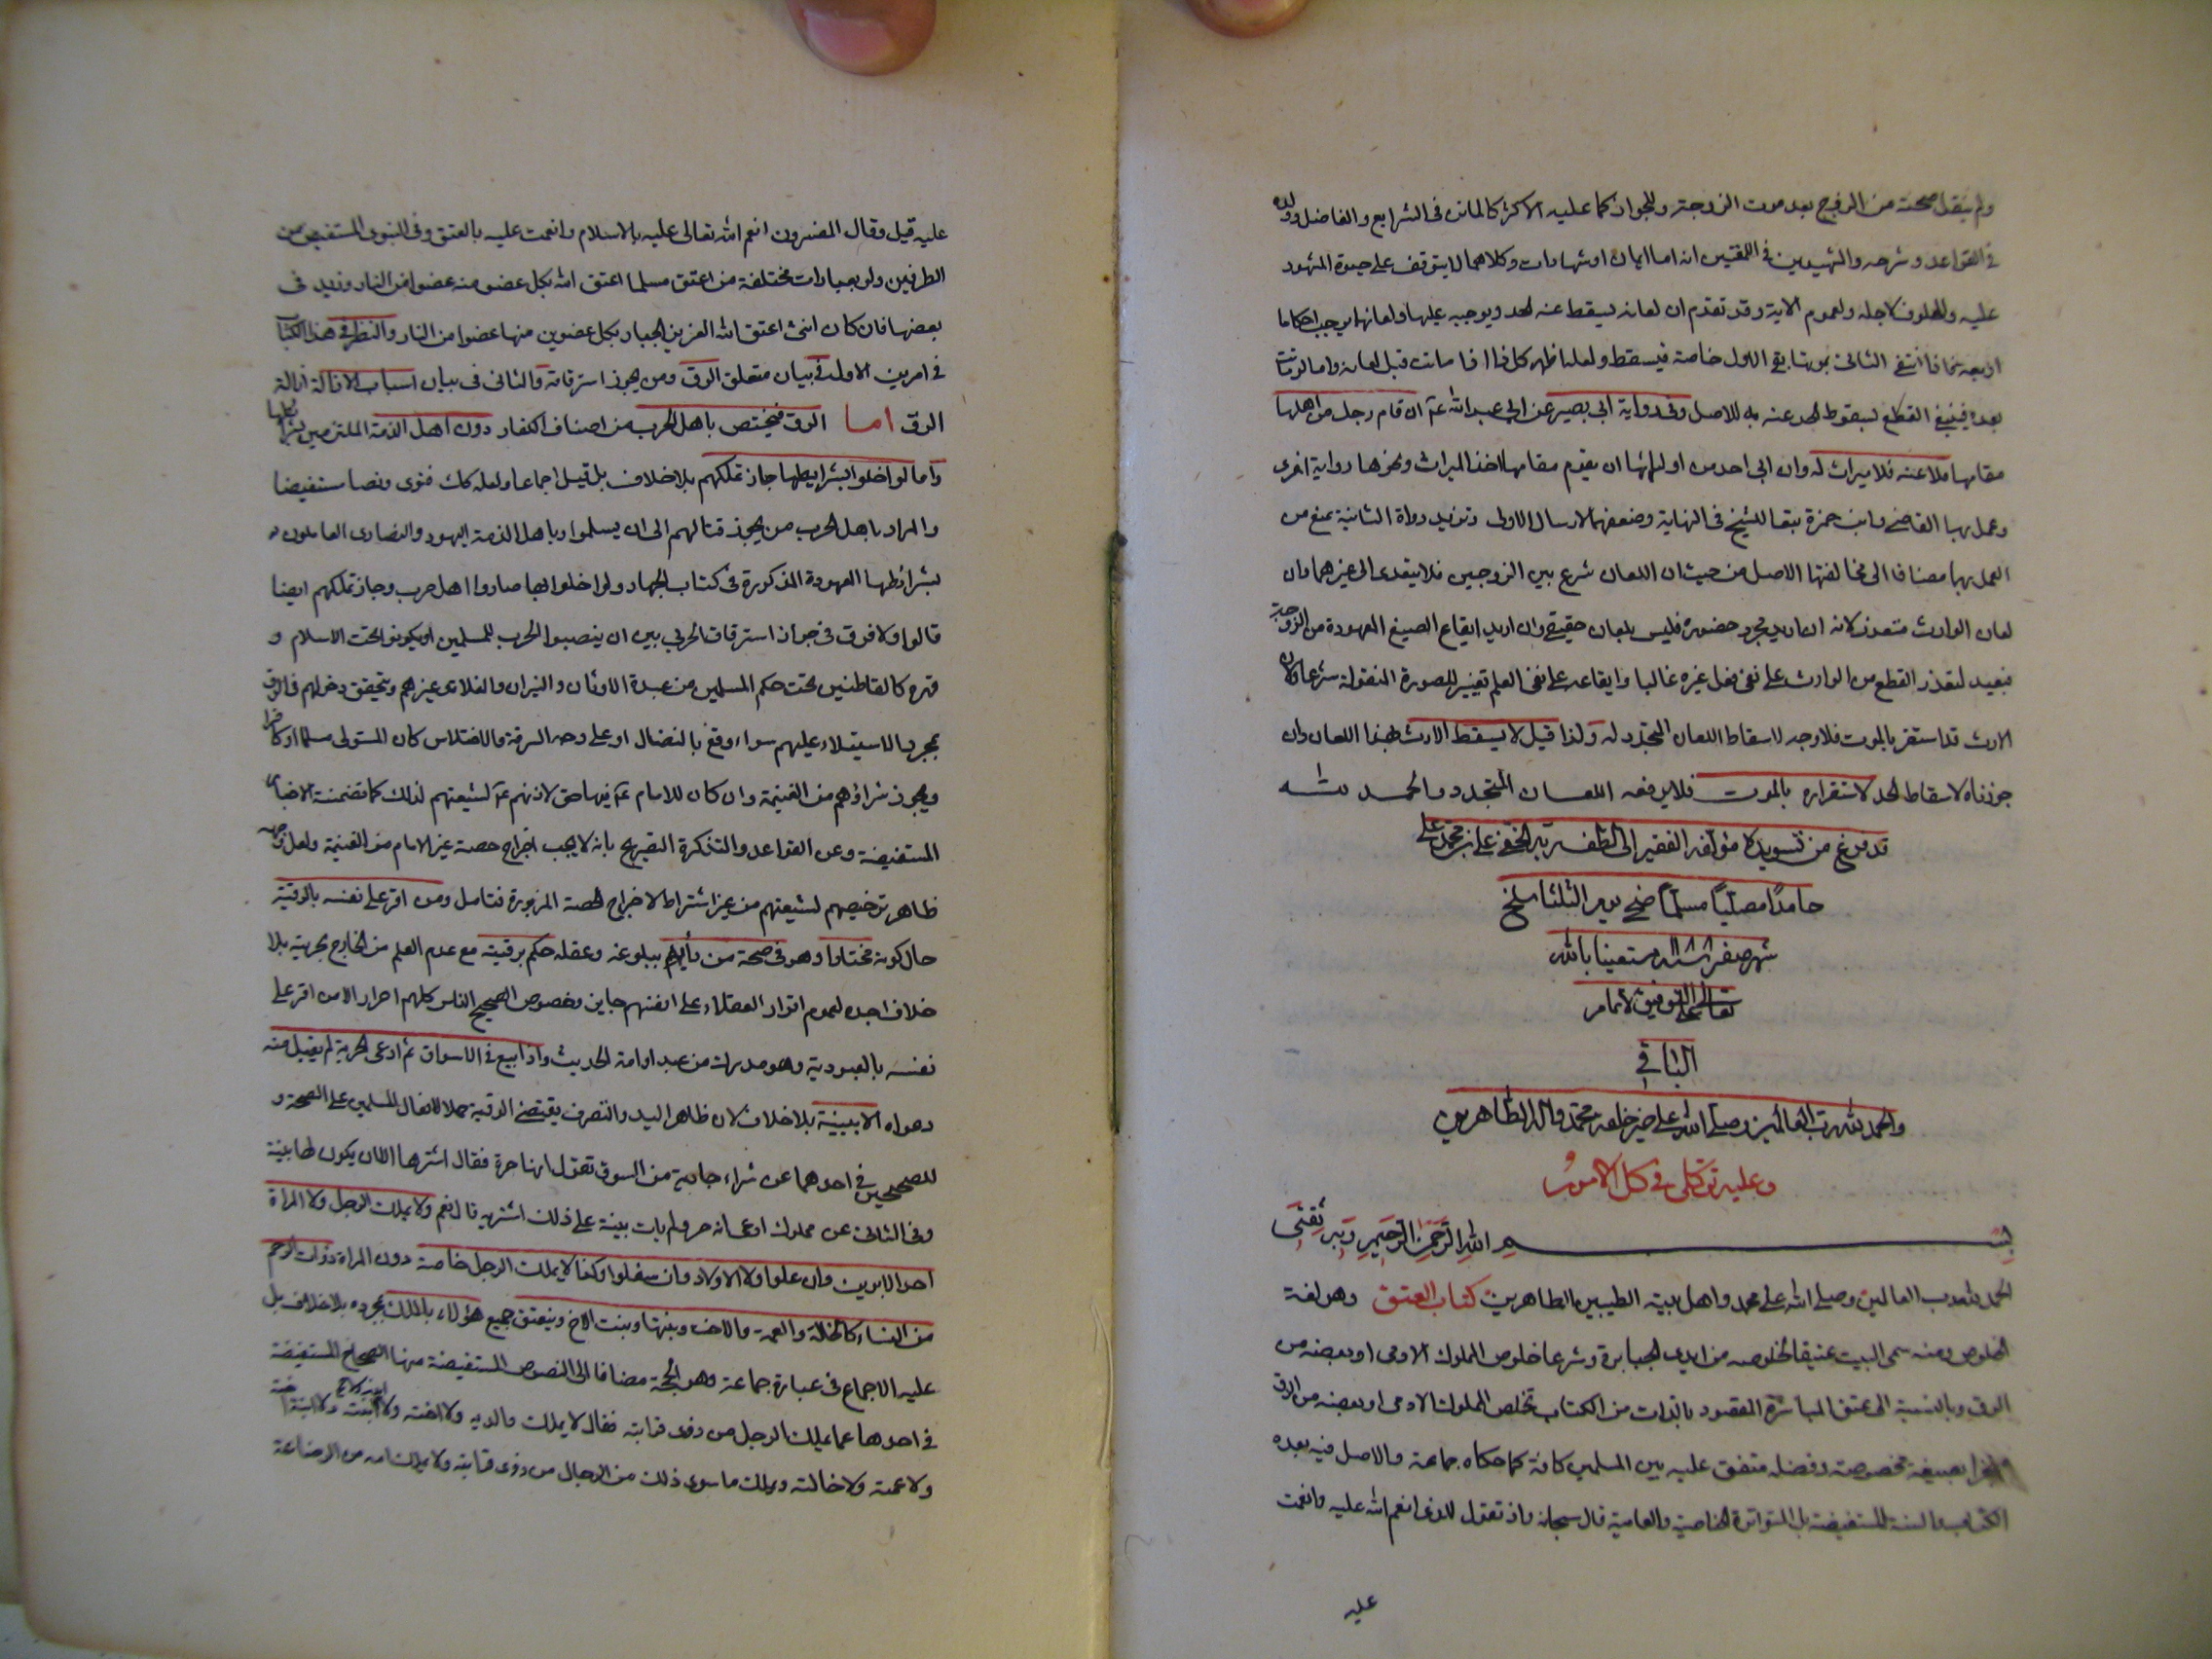 ولم ينقل صحته من الزوج بعد موت الزوجة وللجواز كما عليه الاكثر كالماتن في الشرايع والفاضل وولده
في القواعد وشرحه والشهيدين في اللمعتين انه اما ايمان او شهادات وكلاهما لا يتوقف على حيوة المشهود
عليه والمحلوف لاجله ولعموم الاية وقد تقدم ان لعانه يسقط عنه الحد ويوجبه عليها ولعانها يوجب احكاما
اربعة فاذا انتفى الثاني بموتها بقي الاول خاصة فيسقط ولعلنا ظهر كل ذا اذا ماتت قبل لعانه واما لو ماتت
بعده فينبغي القطع بسقوط الحد عنه به للاصل وفي رواية ابي بصير عن ابي عبد الله عم ان قام رجل من اهلها
مقامها فلاعنه فلا ميراث له وان ابى احد من اوليائها ان يقوم مقامها اخذ الميراث ونحوها رواية اخرى
وعمل بها القاضي وابن حمزة تبعا للشيخ في النهاية وضعفهما لارسال الاولى وتزيد رواة الثانية يمنع من
العمل بها مضافا الى مخالفتها الاصل من حيث ان اللعان شرع بين الزوجين فلا يتعدى الى غيرهما وان
لعان الوارث متعذر لانه ان اريد مجرد حضوره فليس بلعان حقيقي وان اريد ايقاع الصيغ المعهودة من الزوجة
فبعيد لتعذر القطع من الوارث على نفي فعل غيره غالبا وايقاعه على نفي العلم تغيير للصورة المنقولة شرعا ولان
الارث قد استقر بالموت فلا وجه لاسقاط اللعان المتجدد له ولذا قيل لا يسقط الارث بهذا اللعان وان
جوزناه لاسقاط الحد لاستقراره بالموت فلا يرفعه اللعان المتجدد والحمد لله
قد فرغ من تسويده مؤلفه الفقير الى لطف ربه الخفي علي بن محمد علي
حامدا مصليا مسلما ضحى يوم الثلثا سلخ
شهر صفر مستعينا بالله
تعالى على التوفيق لاتمام
الباقي
والحمد لله رب العالمين وصلى الله على خير خلقه محمد واله الطاهرين
وعليه توكلي في كل الامور
بسم الله الرحمن الرحيم وبه ثقتي
الحمد لله رب العالمين وصلى الله على محمد واهل بيته الطيبين الطاهرين كتاب العتق وهو لغة
الخلوص ومنه سمي البيت عتيقا لخلوصه من ايدي الجبابرة وشرعا خلوص المملوك الادمي او بعضه من
الرق وبالنسبة الى عتق المباشرة المقصود بالذات من الكتاب تخلص المملوك الادمي او بعضه من الرق
بصيغة مخصوصة وفضله متفق عليه بين المسلمين كافة كما حكاه جماعة والاصل فيه بعده
الكتاب والسنة المستفيضة بل المتواترة الخاصية والعامية قال سبحانه واذ تقول للذي انعم الله عليه وانعمت
عليه
عليه قيل وقال المفسرون انعم الله تعالى عليه بالاسلام وانعمت عليه بالعتق وفي النبوي المستفيض من
الطرفين ولو بعبارات مختلفة من اعتق مسلما اعتق الله بكل عضو منه عضوا من النار وزيد في
بعضها فان كان انثى اعتق الله العزيز الجبار بكل عضوين منها عضوا من النار والنظر في هذا الكتاب
في امرين الاول في بيان متعلق الرق ومن يجوز استرقاقه والثاني في بيان اسباب الازالة ازالة
الرق اما الرق فيختص باهل الحرب من اصناف الكفار دون اهل الذمة الملتزمين بشرائطها
واما لو اخلوا بشرايطها جاز تملكهم بلا خلاف بل قيل اجماعا ولعله كك فتوى ونصا مستفيضا
والمراد باهل الحرب من يجوز قتالهم الى ان يسلموا وباهل الذمة اليهود والنصارى العاملون
بشرائطها المعهودة المذكورة في كتاب الجهاد ولو اخلوا بها صاروا اهل حرب وجاز تملكهم ايضا
قالوا ولا فرق في جواز استرقاق الحربي بين ان ينصبوا الحرب للمسلمين او يكونوا تحت الاسلام و
قهره كالقاطنين تحت حكم المسلمين من عبدة الاوثان والنيران والغلاة وغيرهم ويتحقق دخولهم في الرق
بمجرد الاستيلاء عليهم سواء وقع بالنضال او على وجه السرقة والاختلاس كان المستولى مسلما او كافرا
ويجوز شراؤهم من الغنيمة وان كان للامام عم فيها حق لاذنهم عم لشيعتهم لذلك كما تضمنته الاخبار
المستفيضة وعن القواعد والتذكرة التصريح بانه لا يجب اخراج حصة غير الامام من الغنيمة ولعل وجهه
ظاهر ترخيصهم لشيعتهم من غير اشتراط لاخراج الحصة المزبورة فتامل ومن اقر على نفسه بالرقية
حال كونه مختارا وهو في صحة من رأيه ببلوغه وعقله حكم برقيته مع عدم العلم من الخارج بحريته بلا
خلاف اجده لعموم اقرار العقلاء على انفسهم جايز وخصوص الصحيح الناس كلهم احرار الا من اقر على
نفسه بالعبودية وهو مدرك من عبد او امة الحديث واذا بيع في الاسواق ثم ادعى الحرية لم يقبل منه
دعواه الا ببينة بلا خلاف لان ظاهر اليد والتصرف يقتضي الرقية حملا لافعال المسلمين على الصحة و
للصحيحين في احدهما عن شراء جارية من السوق تقول انها حرة فقال اشترها الا ان يكون لها بينة
وفي الثاني عن مملوك ادعى انه حر ولم يات ببينة على ذلك اشتريه قال نعم ولا يملك الرجل ولا المراة
احد الابوين وان علوا ولا الاولاد وان سفلوا وكذا لا يملك الرجل خاصة دون المراة ذوات الرحم
من النساء كالخالة والعمة والاخت وبنتها وبنت الاخ وينعتق جميع هؤلاء بالملك بمجرده بلا خلاف بل
عليه الاجماع في عبارة جماعة وهو الحجة مضافا الى النصوص المستفيضة منها الصحاح المستفيضة
في احدها عما يملك الرجل من ذوي قرابته فقال لا يملك والديه ولا اخته ولا ابنة اخيه ولا ابنة اخته
ولا عمته ولا خالته ويملك ما سوى ذلك من الرجال من ذوي قرابته ولا يملك امه من الرضاعة